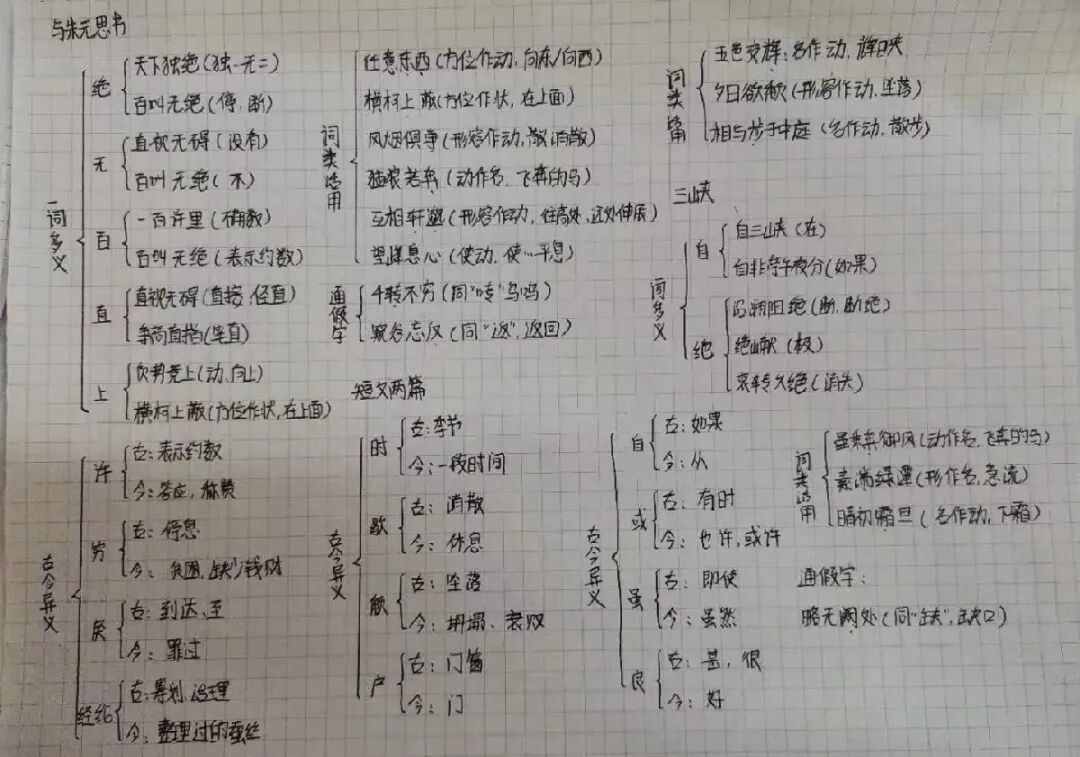 与朱元思书
一词多义
绝
天下独绝(独一无二)
百叫无绝(停,断)
无
直视无碍(没有)
百叫无绝(不)
百
一百许里(确数)
百叫无绝(表示约数)
直
直视无碍(直接,径直)
争高直指(笔直)
上
负势竞上(动,向上)
横柯上蔽(方位作状,在上面)
词类活用
任意东西(方位作动,向东/向西)
横柯上蔽(方位作状,在上面)
风烟俱净(形容作动,散,消散)
猛浪若奔(动作名,飞奔的马)
互相轩邈(形容作动,往高处、远处伸展)
望峰息心(使动,使…平息)
通假字
千转不穷(同“啭”,鸟鸣)
窥谷忘反(同“返”,返回)
短文两篇
词类活用
五色交辉:名作动,辉映
夕日欲颓(形容作动,坠落)
相与步于中庭(名作动,散步)
三峡
一词多义
自
自三峡(在)
自非亭午夜分(如果)
绝
沿溯阻绝(断,断绝)
绝巘(极)
哀转久绝(消失)
古今异义
许
古:表示约数
今:答应,称赞
穷
古:停息
今:贫困,缺少钱财
戾
古:到达、至
今:罪过
经纶
古:筹划、治理
今:整理过的蚕丝
古今异义
时
古:季节
今:一段时间
歇
古:消散
今:休息
颓
古:坠落
今:坍塌、衰败
户
古:门窗
今:门
古今异义
自
古:如果
今:从
或
古:有时
今:也许,或许
虽
古:即使
今:虽然
良
古:甚,很
今:好
词类活用
虽乘奔御风(动作名,飞奔的马)
素湍绿潭(形作名,急流)
晴初霜旦(名作动,下霜)
通假字:
略无阙处(同“缺”,缺口)